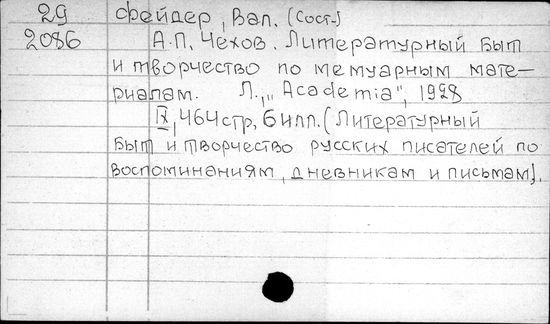 29 Фейдер, Вал. (Сост.)
2086 А.П. Чехов. Литературный быт
и творчество по мемуарным мате-
риалам. Л., "Academia", 1928
IX, 464 стр, 6 илл. (Литературный
быт и творчество русских писателей по
воспоминаниям, дневникам и письмам).